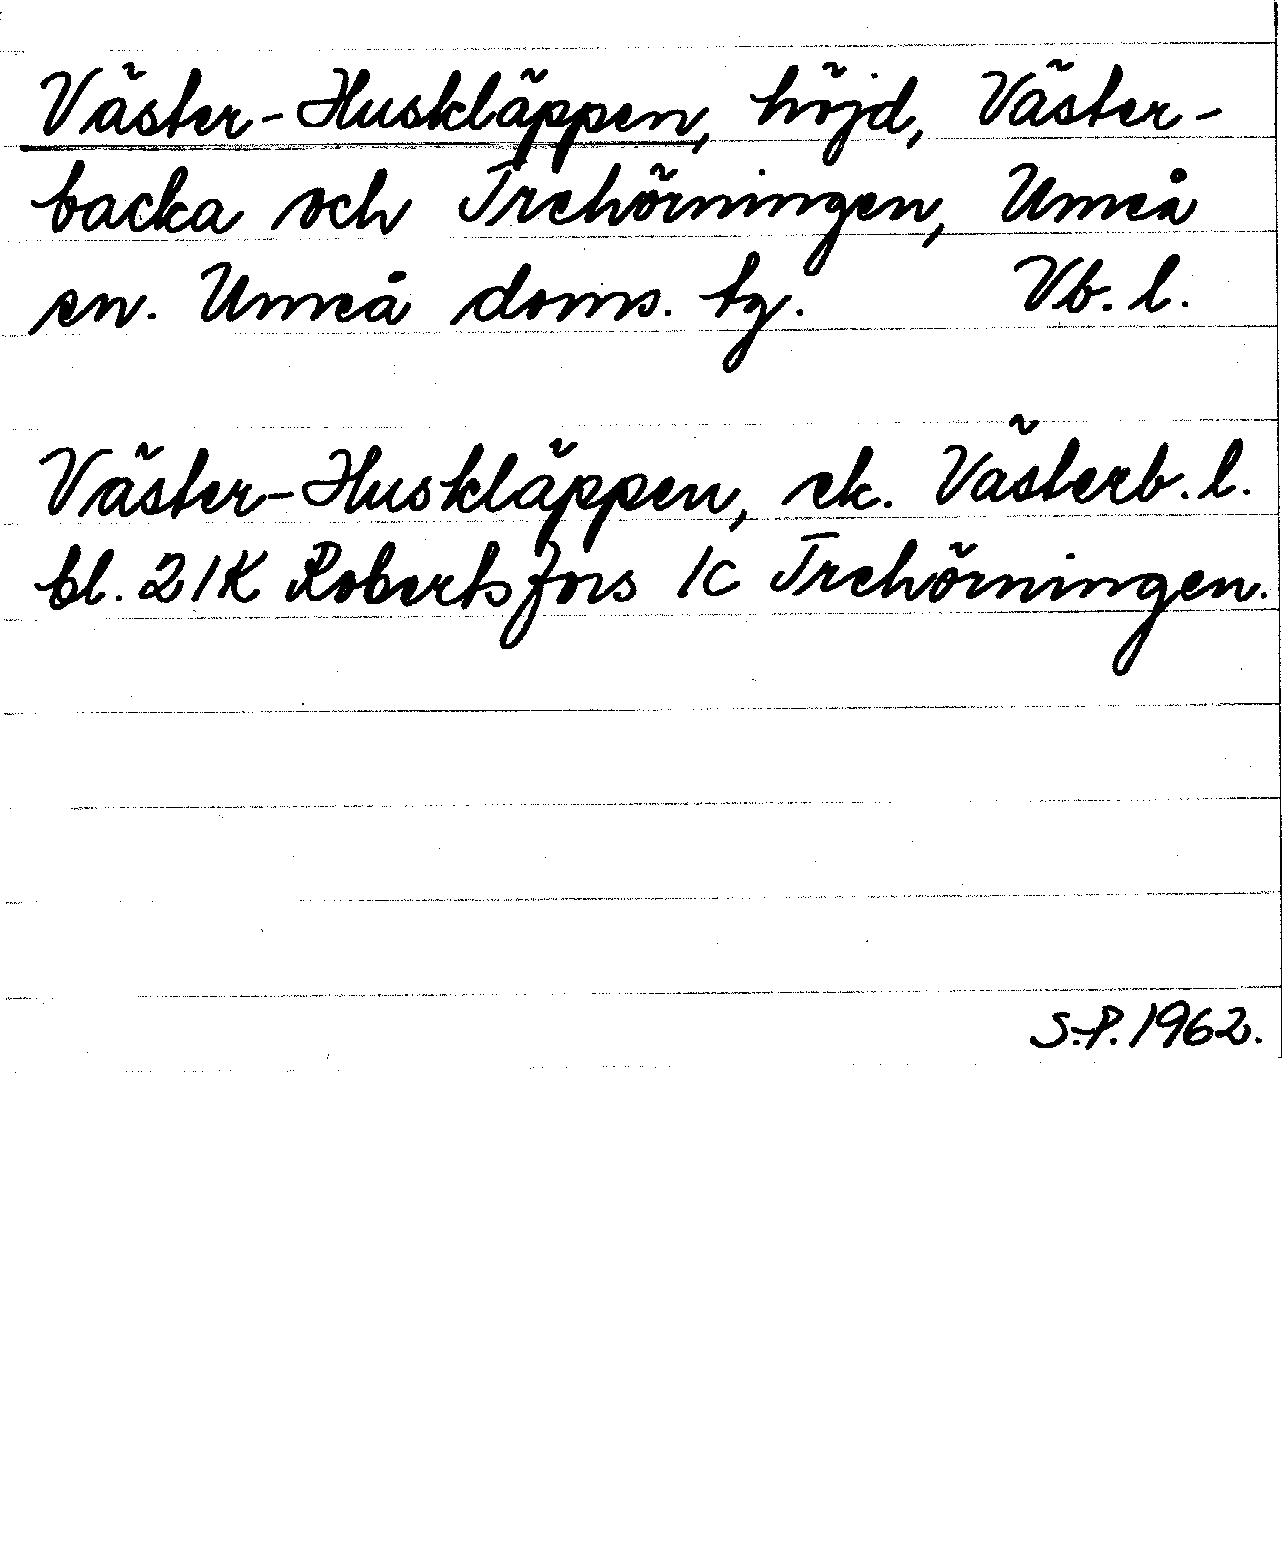 Väster-Huskläppen, höjd, Väster-
backa och Trehörningen, Umeå
sn. Umeå doms. tg. Vb. l.
Väster-Huskläppen, ek. Västerb. l.
bl. 21K Robertsfors 1c Trehörningen.
S.P. 1962.